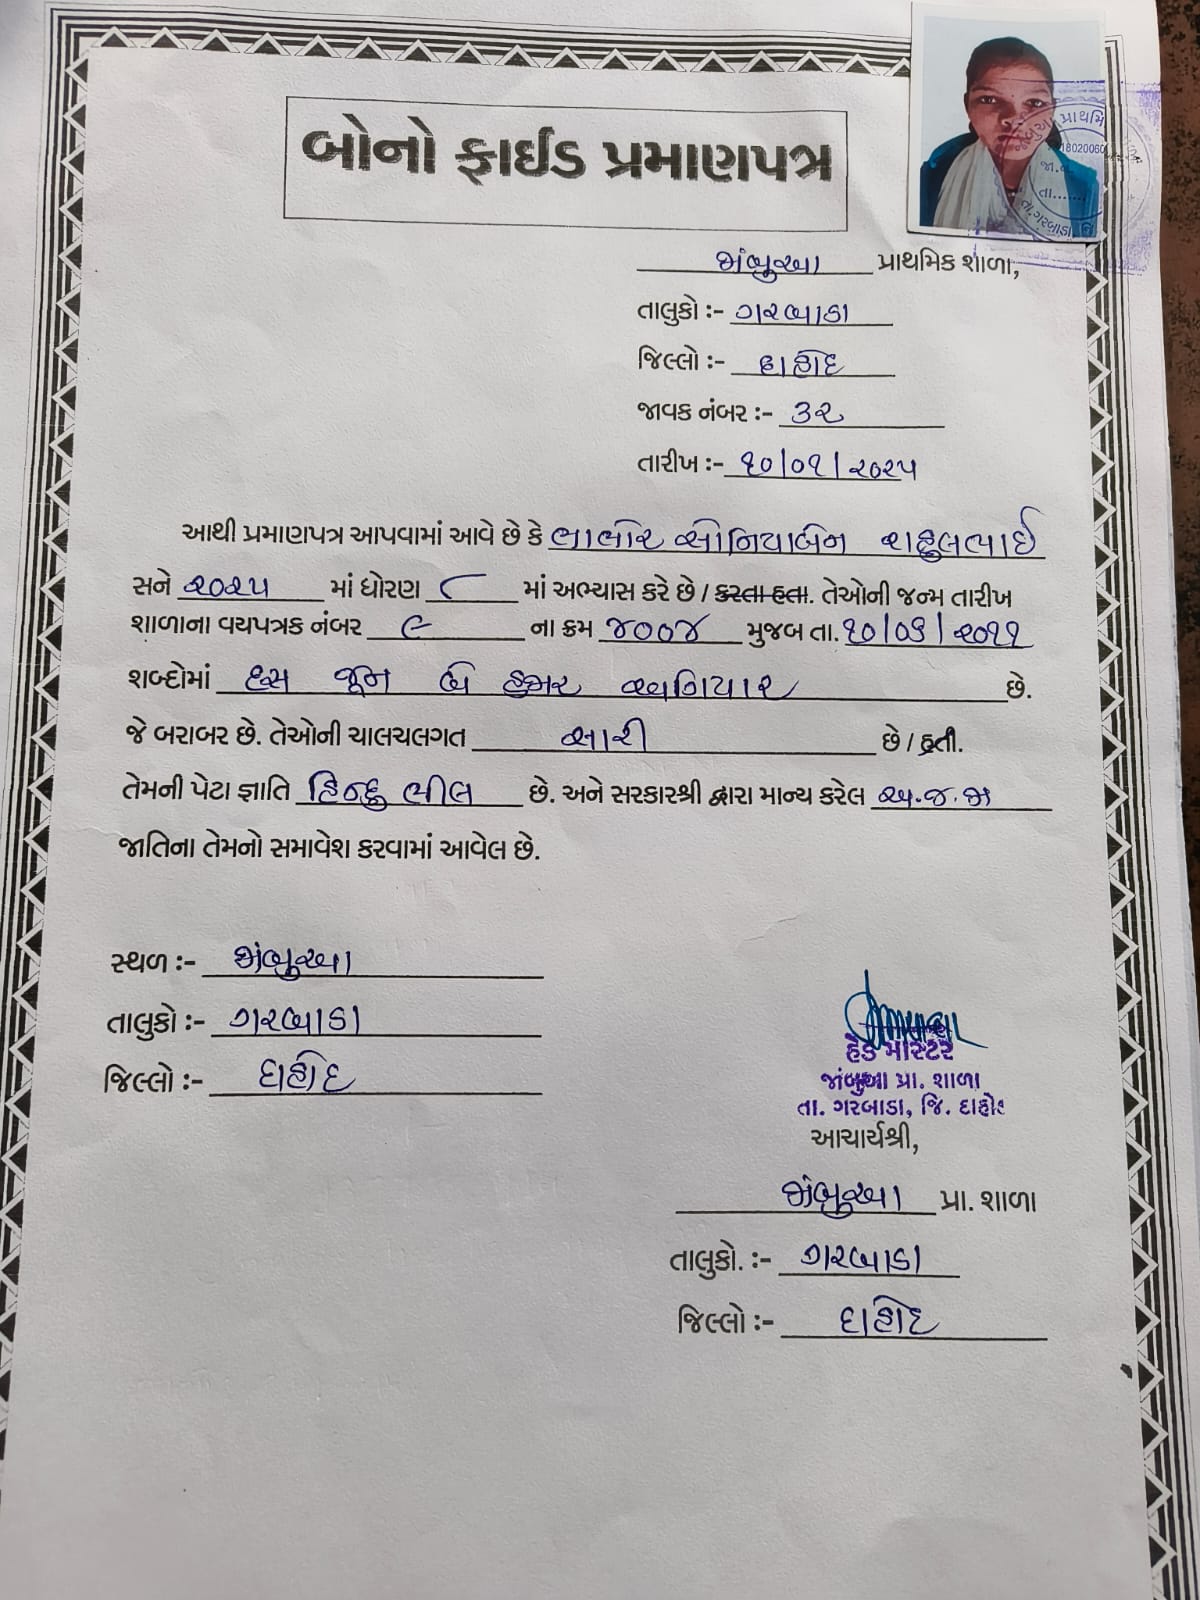 બોનો ફાઈડ પ્રમાણપત્ર
પ્રાથમિ
18020060
જા.
તા.......
તા.ગરબાડા
જાંબુઆ પ્રાથમિક શાળા,
તાલુકો :- ગરબાડા
જિલ્લો :- દાહોદ
જાવક નંબર :- ૩૨
તારીખ :- ૧૦/૦૧/૨૦૨૫
આથી પ્રમાણપત્ર આપવામાં આવે છે કે ભાભોર સોનિયાબેન રાહુલભાઈ
સને ૨૦૨૫ માં ધોરણ ૮ માં અભ્યાસ કરે છે / કરતા હતા. તેઓની જન્મ તારીખ
શાળાના વયપત્રક નંબર ૯ ના ક્રમ ૪૦૦૪ મુજબ તા. ૧૦/૦૬/૨૦૧૧
શબ્દોમાં દસ જૂન બે હજાર અગિયાર છે.
જે બરાબર છે. તેઓની ચાલચલગત સારી છે / હતી.
તેમની પેટા જ્ઞાતિ હિન્દુ ભીલ છે. અને સરકારશ્રી દ્વારા માન્ય કરેલ અ.જ.જા
જાતિના તેમનો સમાવેશ કરવામાં આવેલ છે.
સ્થળ :- જાંબુઆ
તાલુકો :- ગરબાડા
જિલ્લો :- દાહોદ
હેડ માસ્ટર
જાંબુઆ પ્રા. શાળા
તા. ગરબાડા, જિ. દાહોદ
આચાર્યશ્રી,
જાંબુઆ પ્રા. શાળા
તાલુકો. :- ગરબાડા
જિલ્લો :- દાહોદ